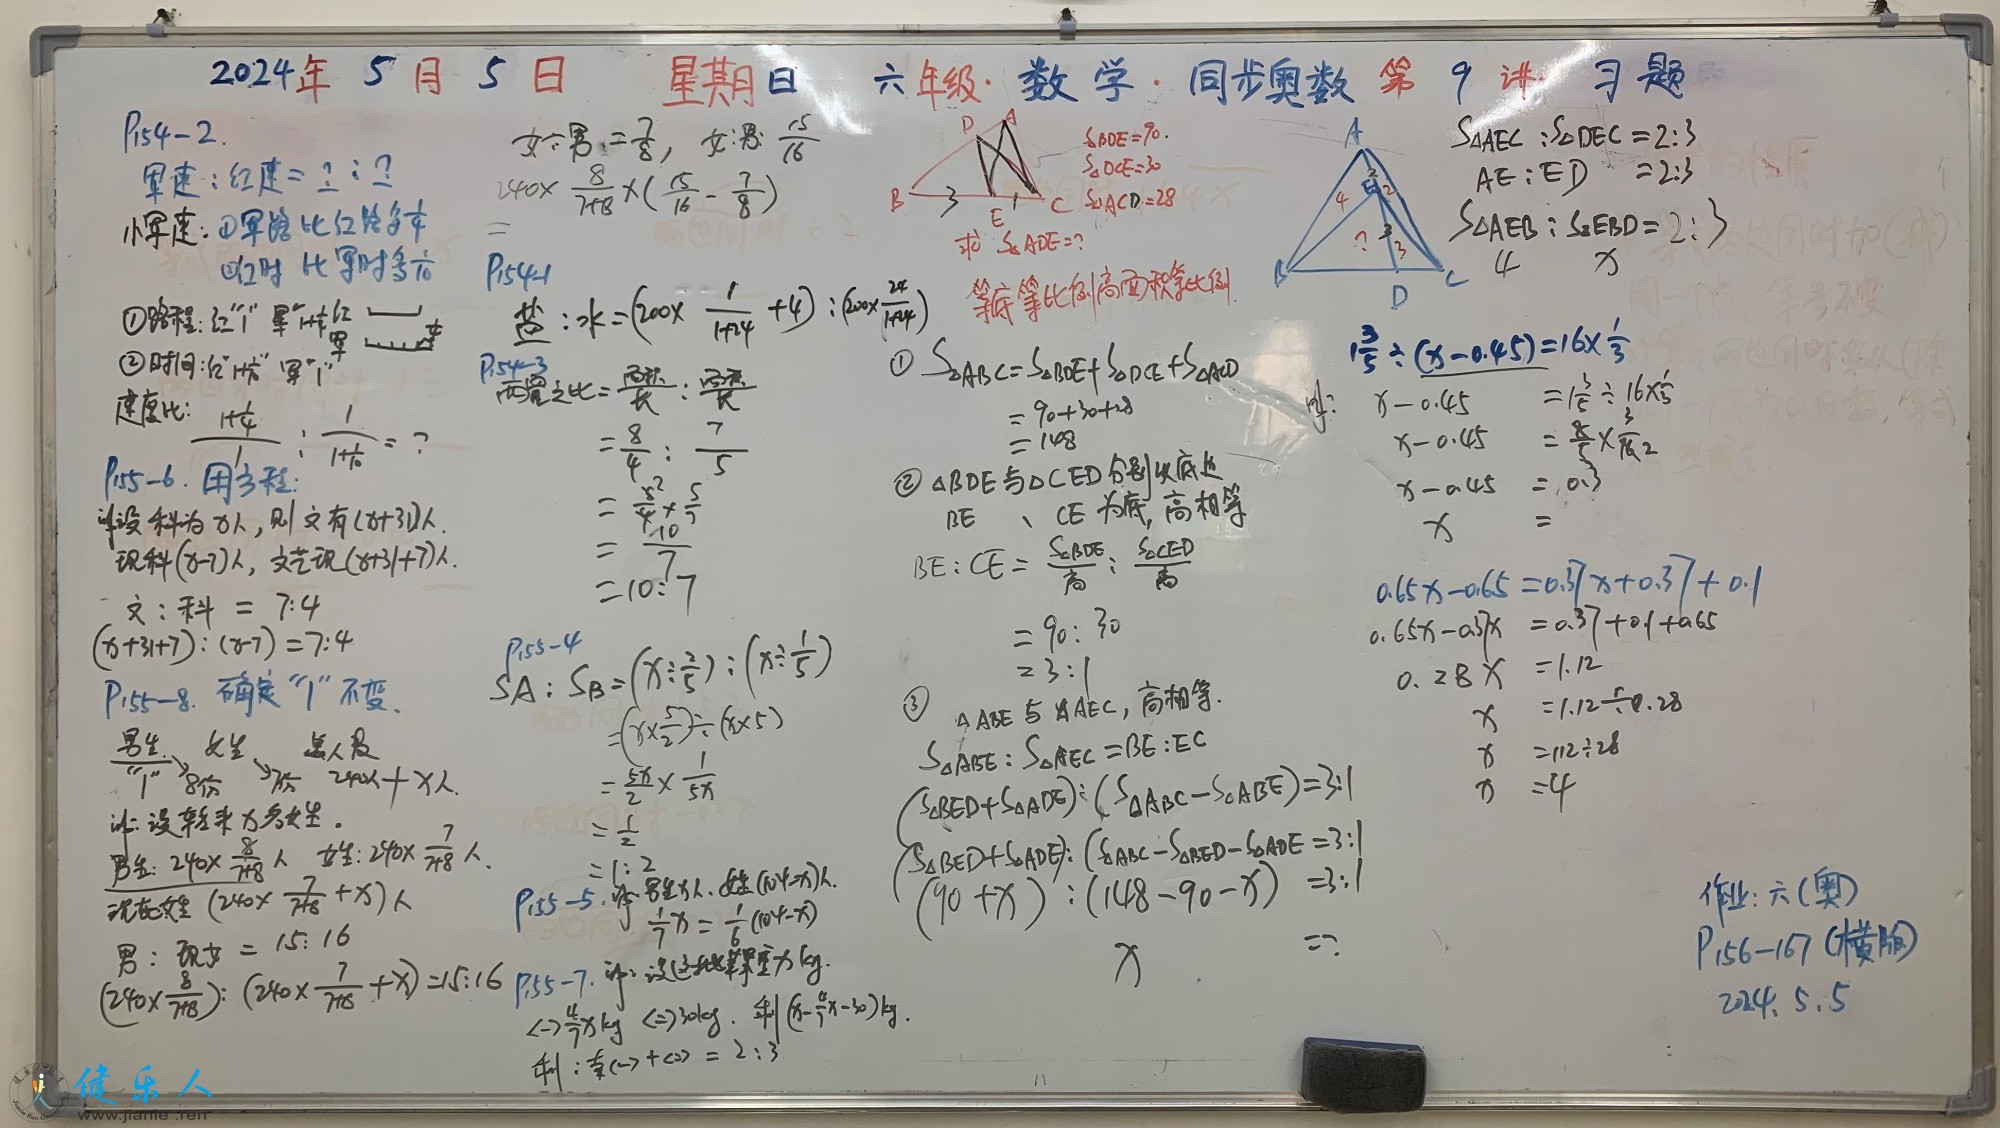 2024年 5月 5日 星期日 六年级·数学·同步奥数 第9讲 习题
P154-2.
军速:红速=?:?
小军速:①军路比红路多1/4
②红时比军时多1/10
①路程:红"1" 军"1+1/4"
红
军
1/4
②时间:红"1+1/10" 军"1"
速度比:
(1+1/4)/1 : 1/(1+1/10) = ?
P155-6. 用方程:
设科为x人,则文有(x+31)人.
现科(x-7)人,文艺现(x+31+7)人.
文:科 = 7:4
(x+31+7):(x-7)=7:4
P155-8. 确定"1"不变.
男生 女生 总人数
"1" 8份 7份 240人+x人.
设转来x名女生.
男生:240×8/(7+8)人 女生:240×7/(7+8)人.
现在女生(240×7/(7+8)+x)人
男:现女=15:16
(240×8/(7+8)):(240×7/(7+8)+x)=15:16
女÷男=7/8, 女:男 15/16
240×8/(7+8)×(15/16-7/8)
=
P154-1
盐:水=(200×1/(1+24)+4):(200×24/(1+24))
P154-3
两宽之比=面积/长:面积/长
=8/4:7/5
=8/4×5/7
2
=10/7
=10:7
P155-4
SA:SB=(x÷2/5):(x÷1/5)
=(x×5/2)÷(x×5)
=5x/2×1/5x
=1/2
=1:2
P155-5. 男生x人.女生(104-x)人.
1/7x=1/6(104-x)
P155-7. 设这批苹果重xkg.
<一>4/7xkg <二>30kg. 剩(x-4/7x-30)kg.
剩:卖<一>+<二>=2:3
D A
B 3 E 1 C
S△BDE=90.
S△DCE=30
S△ACD=28
求 S△ADE=?
等底等比例高面积等比例.
① S△ABC=S△BDE+S△DCE+S△ACD
=90+30+28
=148
② △BDE与△CED分别以底边
BE、CE为底,高相等
BE:CE=S△BDE/高:S△CED/高
=90:30
=3:1
③ △ABE与△AEC,高相等.
S△ABE:S△AEC=BE:EC
(S△BED+S△ADE):(S△ABC-S△ABE)=3:1
(S△BED+S△ADE):(S△ABC-S△BED-S△ADE=3:1
(90+x):(148-90-x)=3:1
x =?
A
2
4 E 2
? 3 3
B D C
S△AEC:S△DEC=2:3
AE:ED =2:3
S△AEB:S△EBD=2:3
4 x
1 3/5÷(x-0.45)=16×1/3
解: x-0.45 =1 3/5÷16×1/3
x-0.45 =8/5×3/16 2
x-0.45 =0.3
x =
0.65x-0.65=0.37x+0.37+0.1
0.65x-0.37x =0.37+0.1+0.65
0.28x =1.12
x =1.12÷0.28
x =112÷28
x =4
作业:六(奥)
P156-167(横版)
2024.5.5
健乐人
www.jianle.ren